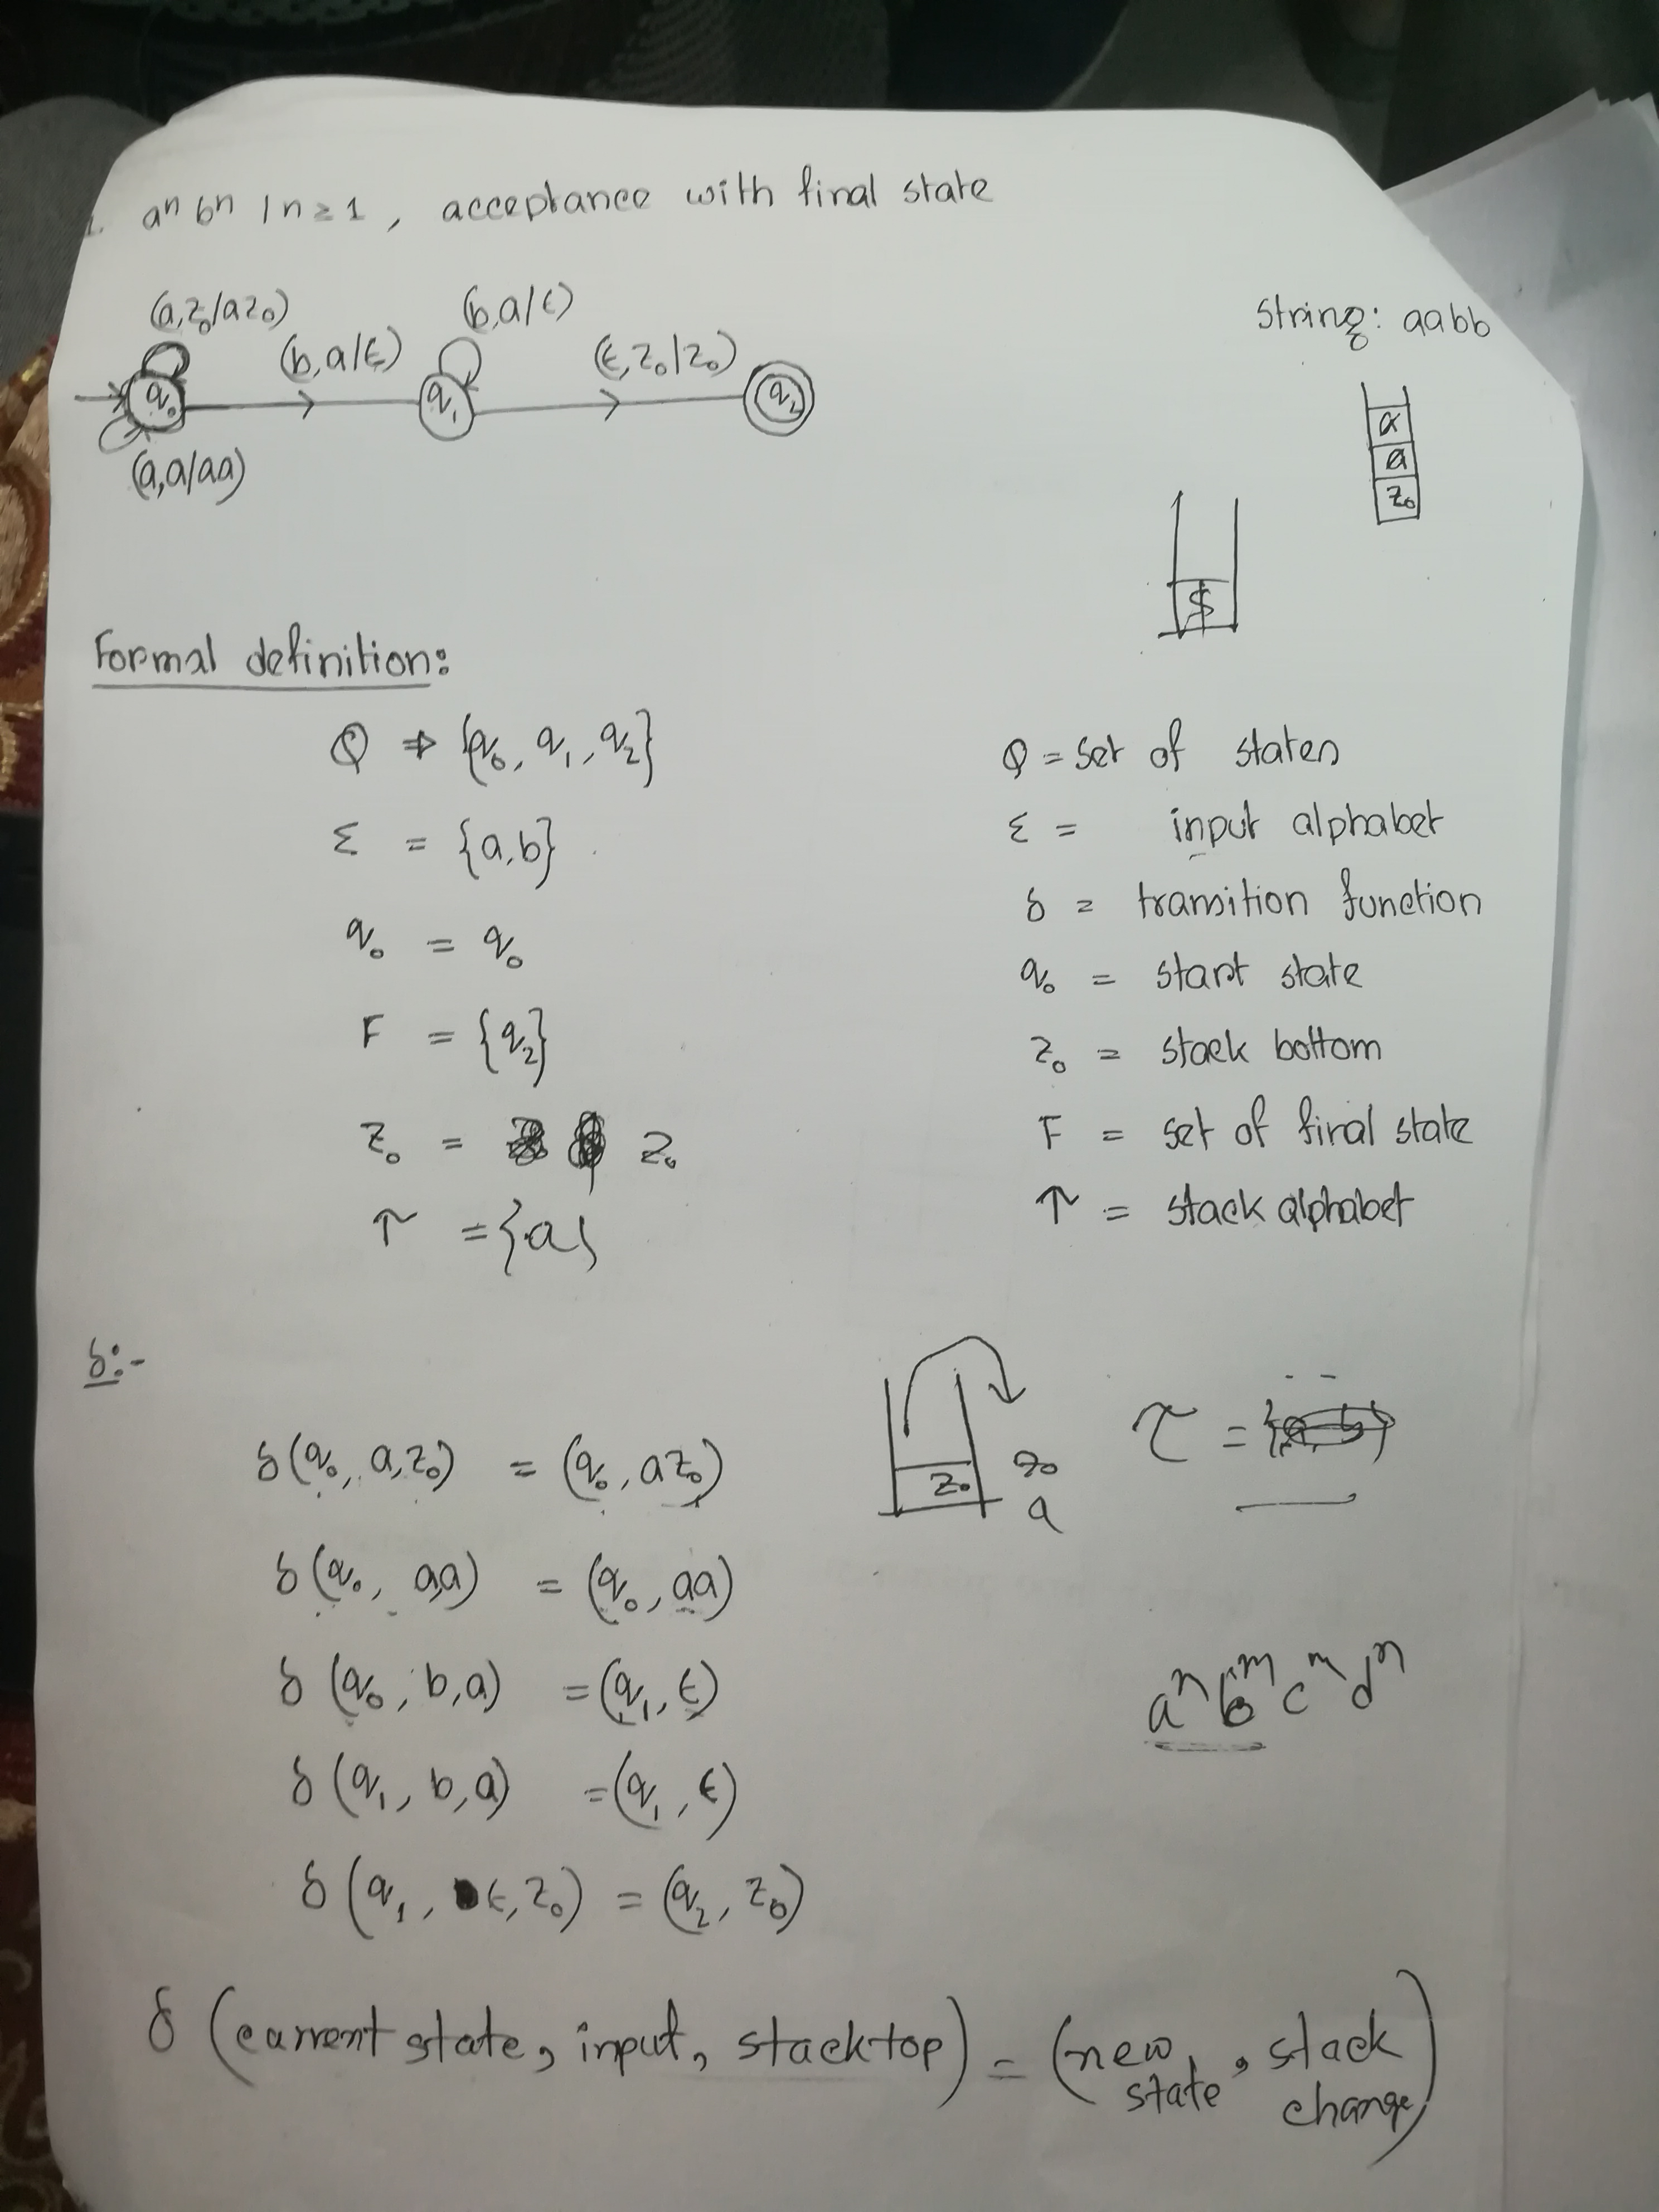 1. aⁿ bⁿ | n ≥ 1, acceptance with final state
(a, z₀/az₀)
(b, a/ε)
(b, a/ε)
(ε, z₀/z₀)
q₀
q₁
q₂
(a, a/aa)
String: aabb
a
a
z₀
$
Formal definition:
Q ⇒ {q₀, q₁, q₂}
Σ = {a, b}
q₀ = q₀
F = {q₂}
z₀ = z₀
Γ = {a}
Q = set of states
Σ = input alphabet
δ = transition function
q₀ = start state
z₀ = stack bottom
F = set of final state
Γ = stack alphabet
δ:-
δ(q₀, a, z₀) = (q₀, az₀)
δ(q₀, a,a) = (q₀, aa)
δ(q₀, b, a) = (q₁, ε)
δ(q₁, b, a) = (q₁, ε)
δ(q₁, ε, z₀) = (q₂, z₀)
z₀
z₀
a
τ =
aⁿ bᵐ cᵐ dⁿ
δ (current state, input, stack top) = (new state, stack change)